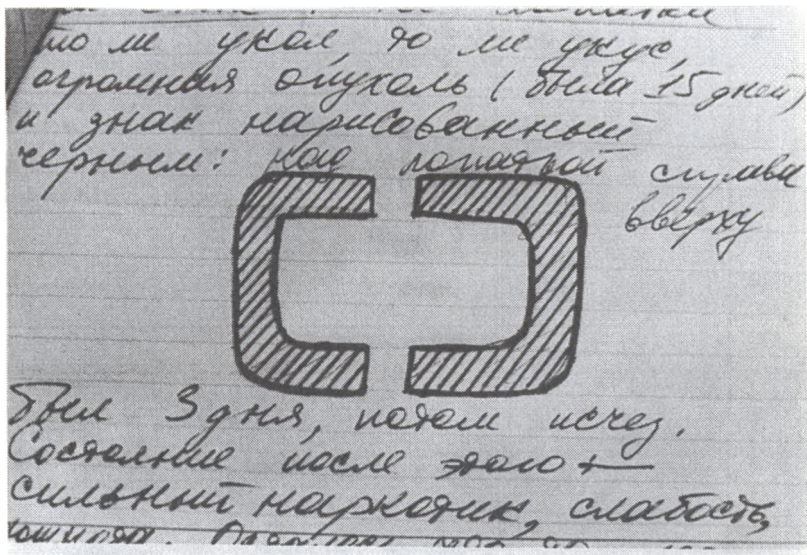 то ли укол, то ли укус,
огромная опухоль (была 15 дней)
и знак нарисованный
черным: над лопаткой слева
вверху
был 3 дня, потом исчез.
Состояние после этого —
сильный наркотик, слабость,
тошнота.